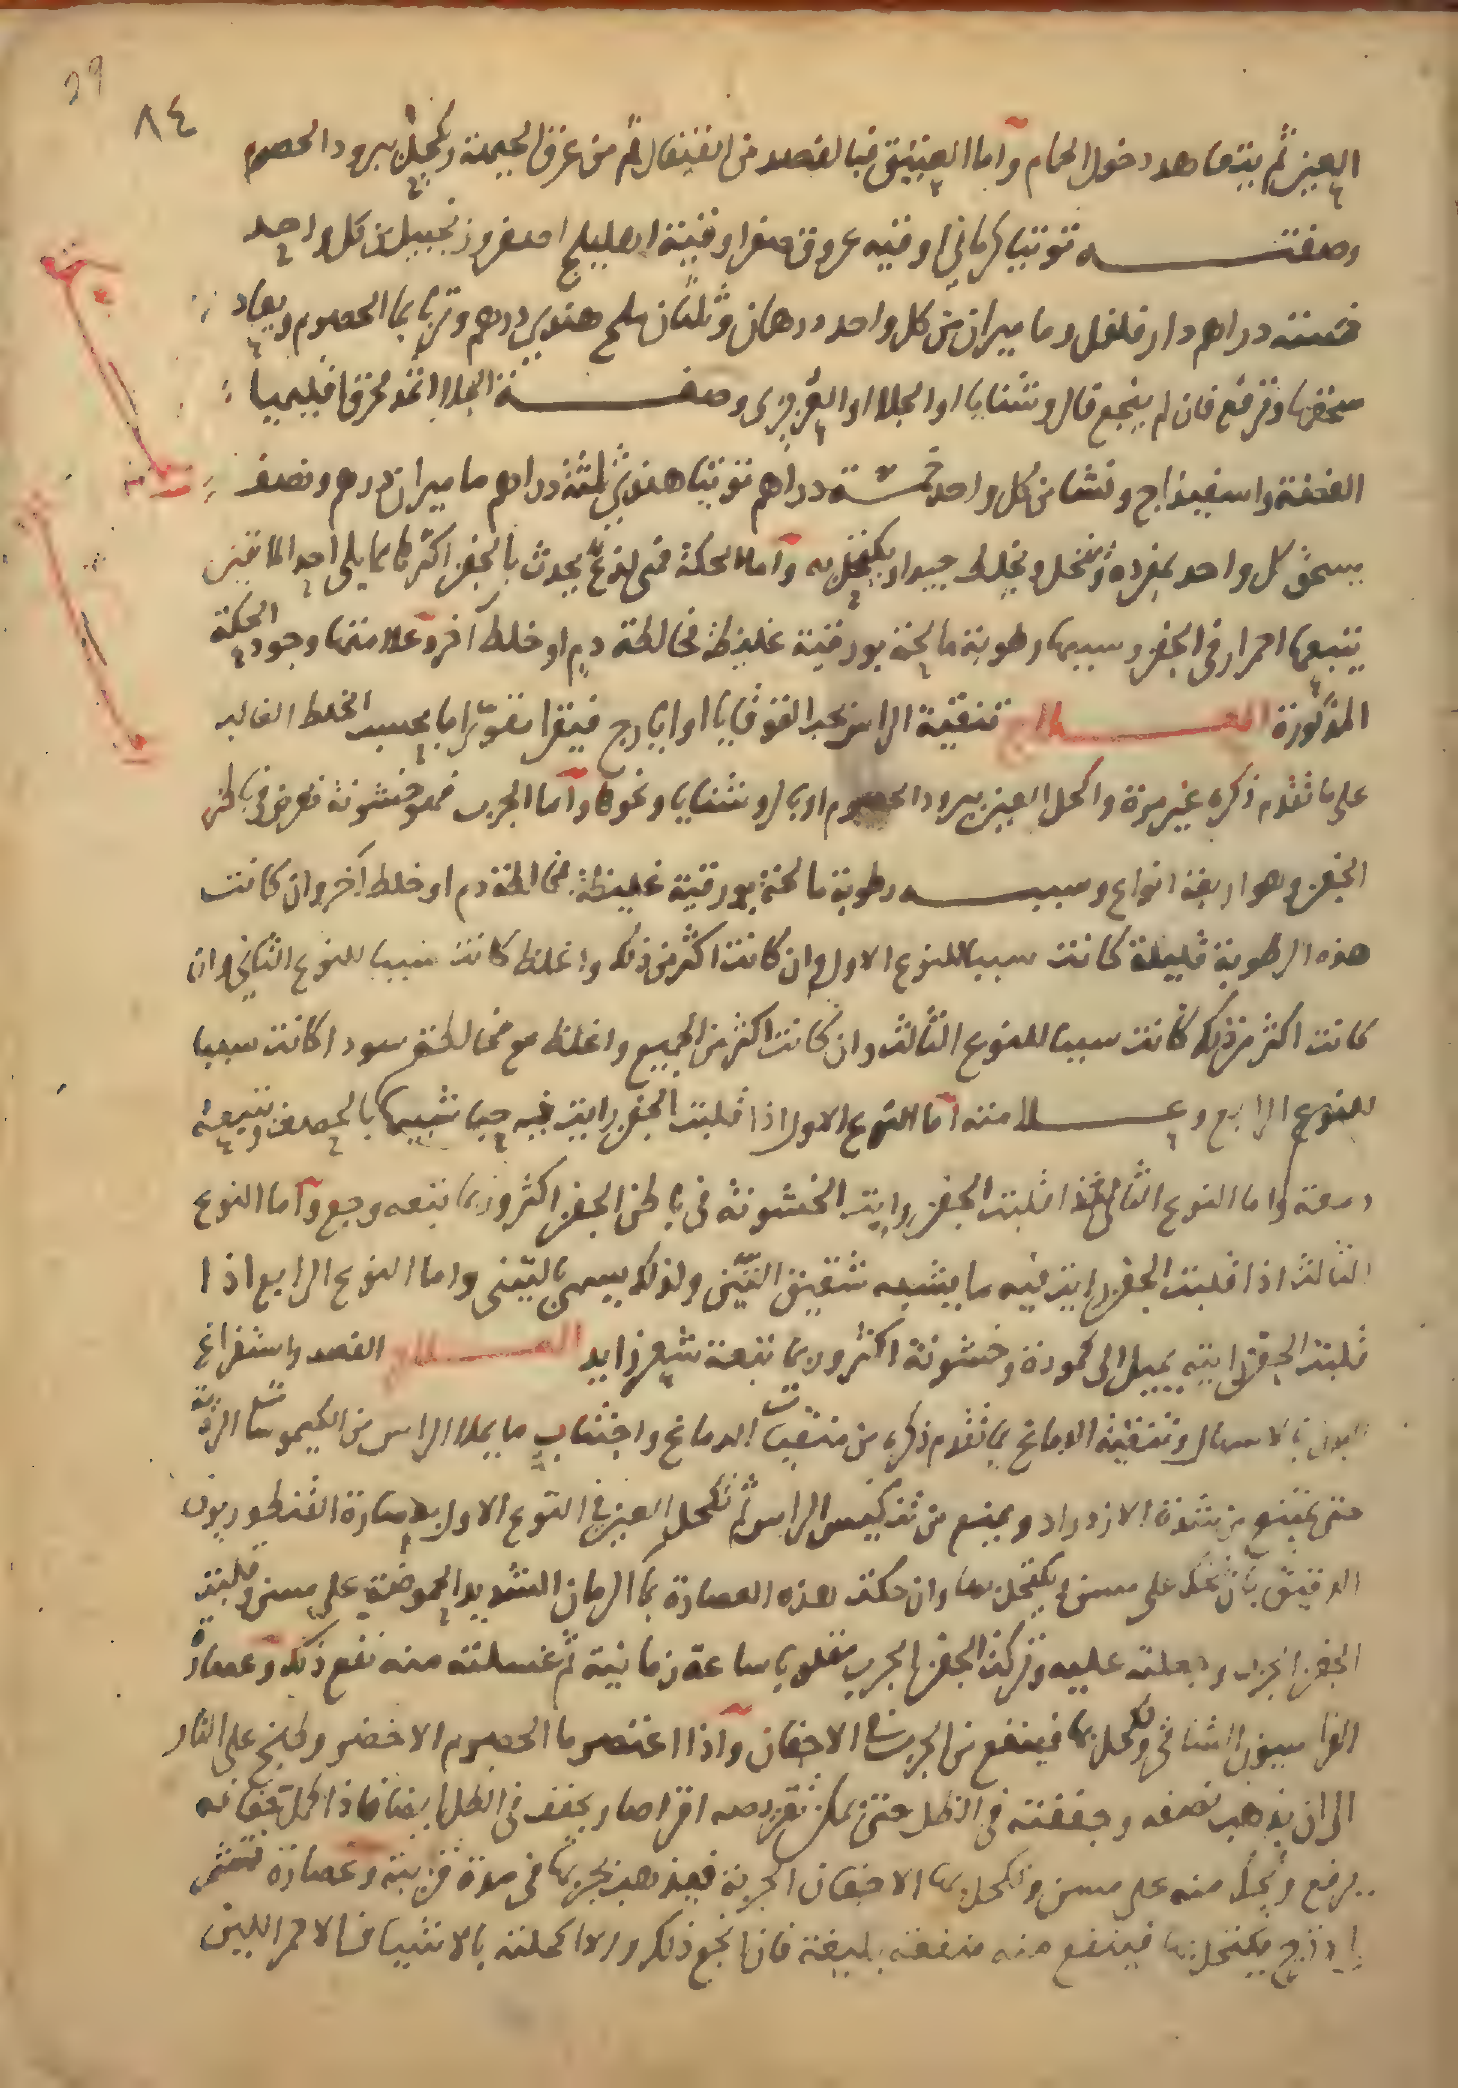 29
٨٤
العين ثم يتعاهد دخول الحمام وأما العتيق فبالفصد من القيفال ثم من عرق الجبهة ويكحل ببرود الحصرم
وصفته توتيا كرماني اوقيه عروق صفر اوقية اهليلج اصفر وزنجبيل من كل واحد
خمسة دراهم دار فلفل وما ميران من كل واحد درهمان وثلثان ملح هندي درهم وتربا بما الحصرم ويعاد
سحقها وترفع فان لم ينجع قالروشنايا او الجلا او العزيزى وصفة الجلا اثمد محرق اقليميا
الفضة واسفيذاج ونشا من كل واحد خمسة دراهم توتيا هندي ثلثة دراهم ما ميران درهم ونصف
يسحق كل واحد بمفرده وينخل ويخلط جيدا ويكتحل به وأما الحكة فهى لذع يحدث بالجفن اكثرها مما يلى احد الماقين
يتبعها احمرار في الجفن وسببها رطوبة مالحة بورقية غليظة مخالطة دم او خلط آخر وعلامتها وجود الحكة
المذكورة العلاج تنقية الراس بحب القوقايا او ايارج فيقرا مقوّيا بحسب الخلط الغالب
على ما تقدم ذكره غير مرة واكحل العين ببرود الحصرم او بالروشنايا ونحوها وأما الجرب فهو خشونة تعرض في باطن
الجفن وهو اربعة انواع وسببه رطوبة مالحة بورقية غليظة مخالطة دم او خلط آخر وان كانت
هذه الرطوبة قليلة كانت سببا للنوع الاول وان كانت اكثر من ذلك واغلظ كانت سببا للنوع الثاني وان
كانت اكثر من ذلك كانت سببا للنوع الثالث وان كانت اكثر من الجميع واغلظ مع مخالطة سودا كانت سببا
للنوع الرابع وعلامته أما النوع الاول اذا قلبت الجفن رايت فيه حبا شبيها بالحصف وتتبعه
دمعة واما النوع الثاني فاذا قلبت الجفن رايت الخشونة في باطن الجفن اكثر وربما يتبعه وجع وأما النوع
الثالث اذا قلبت الجفن رايت فيه ما يشبه شقيق التّين ولذلك يسمى بالتينى واما النوع الرابع اذا
قلبت الجفن رايته يميل الى كمودة وخشونة اكثر وربما تبعه شعر زايد العلاج الفصد واستفراغ
البدن بالاسهال وتنقية الدماغ بما تقدم ذكره من منقيات الدماغ واجتناب ما يملا الراس من الكيموسات الردية
حتى يمتنع من شدة الازدراد ويمنع من تنكيس الراس ثم تكحل العين في النوع الاول بعصارة القنطوريون
الدقيق بأن تحك على مسن ويكتحل بها وان حكت هذه العصارة بما الرمان الشديد الحموضة على مسن وقلبت
الجفن الجرب وجعلته عليه وتركت الجفن الجرب مقلوبا ساعة زمانية ثم غسلته منه نفع ذلك وعصارة
الفراسيون الشامى وتكحل بها فينفع من الجرب في الاجفان وأذا اعتصر ما الحصرم الاخضر وطبخ على النار
الى ان يذهب نصفه وجففته في الظل حتى يمكن تقريصه اقراصا ويجفف في الظل ايضا فاذا كمل جفافه
يرفع وتحك منه على مسن وتكحل بها الاجفان الجربة فيذهب بجربها في مدة قريبة وعصارة قشر
وتكتحل بها فينفع منه منفعة بليغة فان انجع ذلك والا اكحلته بالاشياف الاحمر اللين